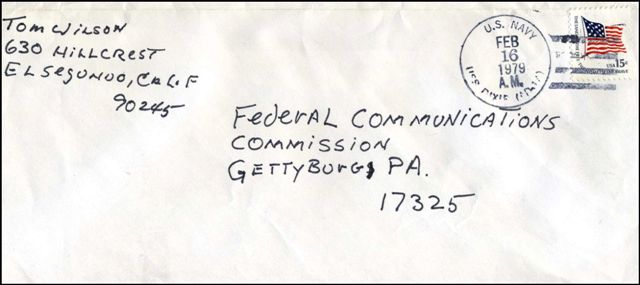 TOM WILSON
630 HILLCREST
EL SEGUNDO, CALIF
90245
U.S. NAVY
FEB
16
1979
A.M.
USS DIXIE
USA 15c
Federal Communications
Commission
GETTYBURG, PA.
17325